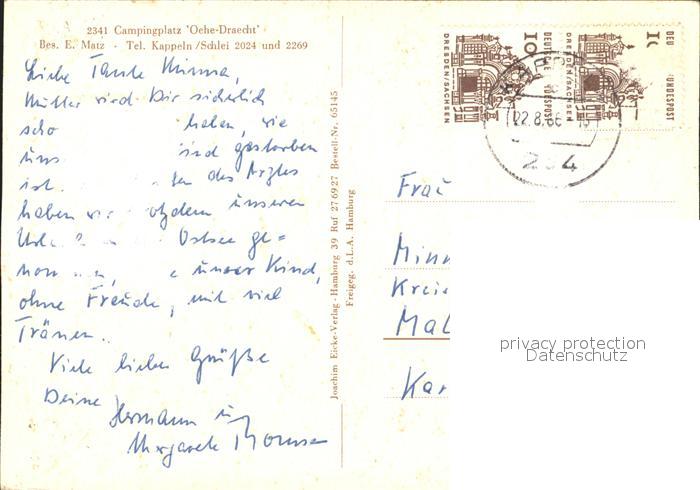 2341 Campingplatz 'Oehe-Draecht'
Bes. E. Matz · Tel. Kappeln/Schlei 2024 und 2269
Liebe Tante Minna,
Mutter wird Dir sicherlich
scho haben, wie
uns ind gestorben
ist. des Arztes
haben otzdem unseren
Url Ostsee ge=
nom unser Kind,
ohne Freude, mit viel
Tränen.
Viele liebe Grüße
Deine Hermann u
Margarete
Joachim Eicke-Verlag · Hamburg 39 Ruf 27 69 27 Bestell-Nr. 65145
Freigeg. d. L. A. Hamburg
10 DEUTSCHE BUNDESPOST
DRESDEN/SACHSEN
DRESDEN/SACHSEN
22.8.66
234
Frau
Minn
Kreis
Mal
Kar
privacy protection
Datenschutz